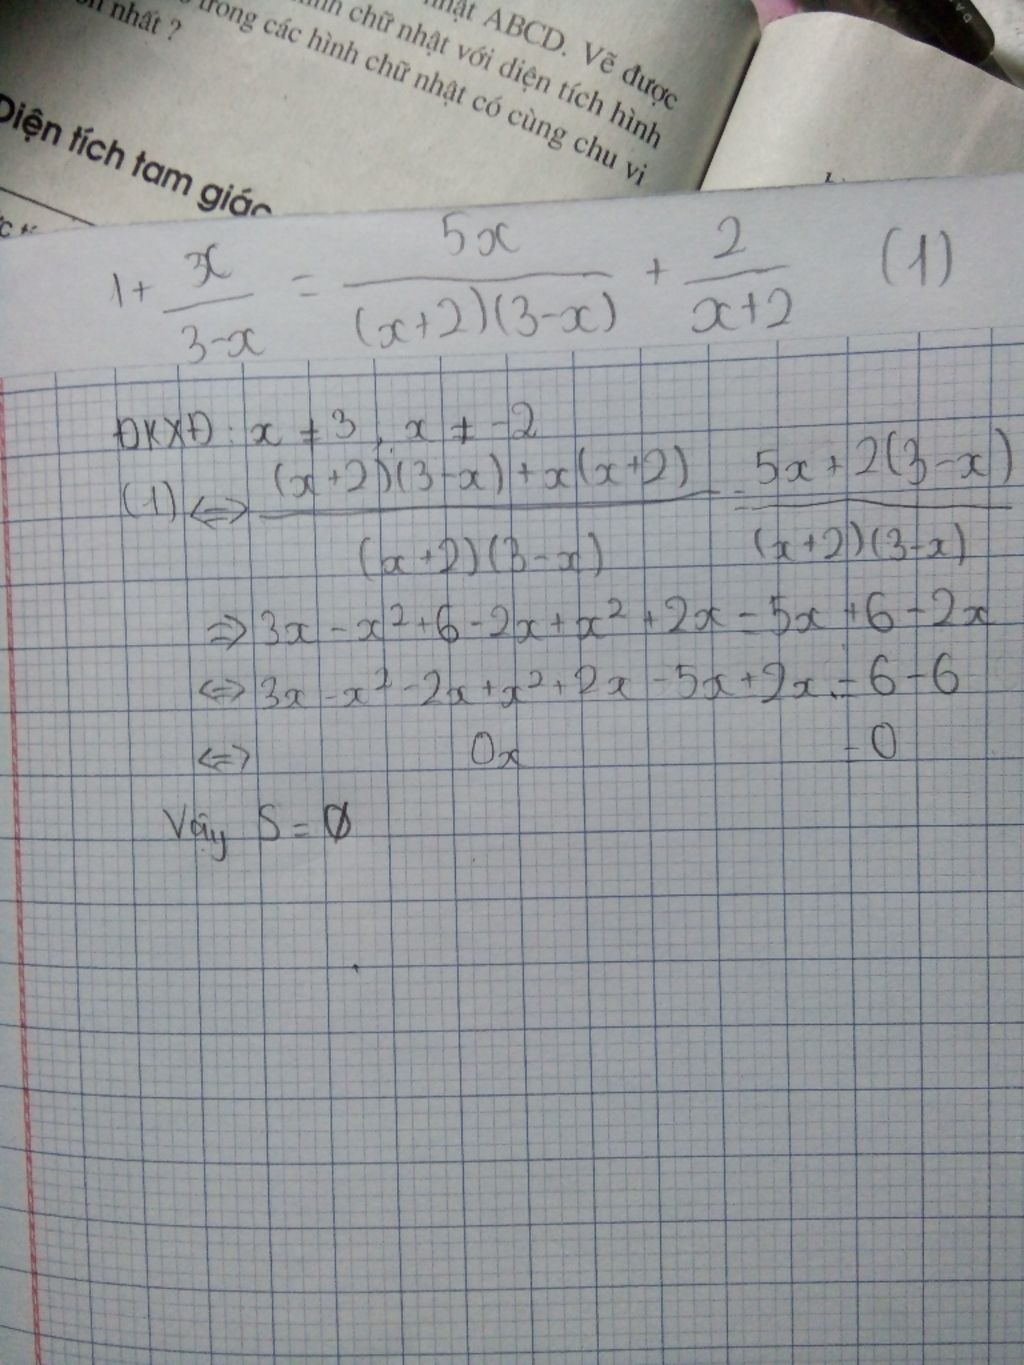 nhật ABCD. Vẽ được
hình chữ nhật với diện tích hình
trong các hình chữ nhật có cùng chu vi
nhất ?
Diện tích tam giác
1 + x/(3-x) = 5x/((x+2)(3-x)) + 2/(x+2) (1)
ĐKXĐ: x ≠ 3, x ≠ -2
(1) <=> ((x+2)(3-x) + x(x+2))/((x+2)(3-x)) = (5x + 2(3-x))/((x+2)(3-x))
=> 3x - x² + 6 - 2x + x² + 2x = 5x + 6 - 2x
<=> 3x - x² - 2x + x² + 2x - 5x + 2x = 6 - 6
<=> 0x = 0
Vậy S = Ø